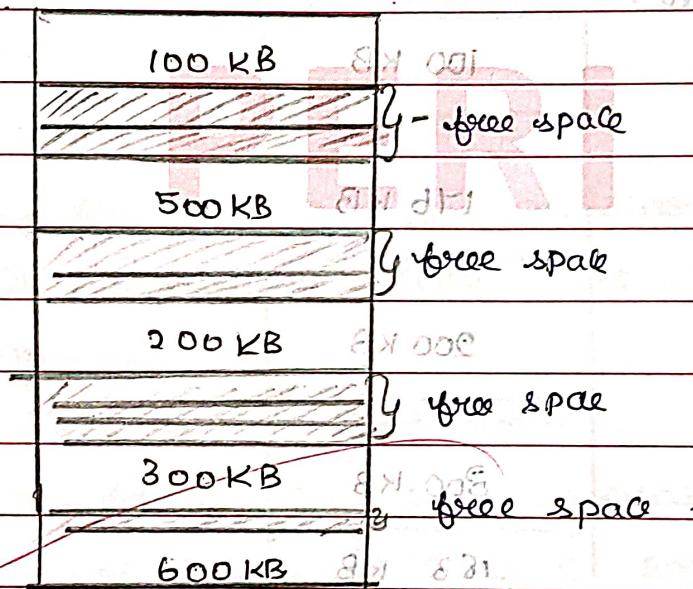 100 KB
- free space
500 KB
free space
200 KB
free spae
300 KB
free space
600 KB